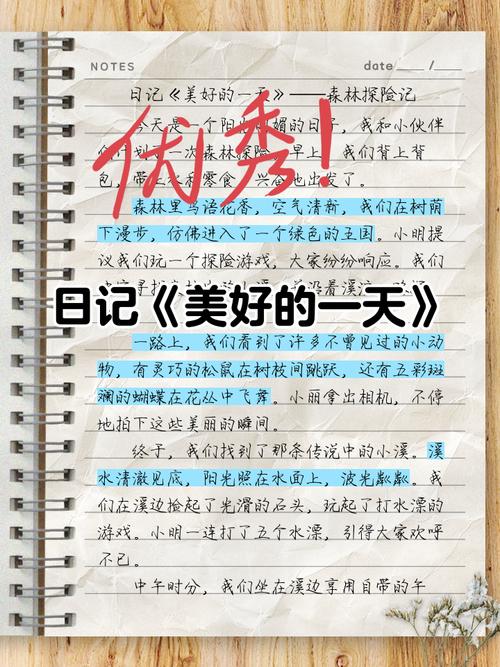 NOTES
date ___ / ___
日记《美好的一天》——森林探险记
优秀!
今天是一个阳光明媚的日子，我和小伙伴
一次森林探险。早上，我们背上背
包，带上水和零食，兴奋地出发了。
森林里鸟语花香，空气清新，我们在树荫
下漫步，仿佛进入了一个绿色的王国。小明提
议我们玩一个探险游戏，大家纷纷响应。我们
日记《美好的一天》
一路上，我们看到了许多不曾见过的小动
物，有灵巧的松鼠在树枝间跳跃，还有五彩斑
斓的蝴蝶在花丛中飞舞。小丽拿出相机，不停
地拍下这些美丽的瞬间。
终于，我们找到了那条传说中的小溪。溪
水清澈见底，阳光照在水面上，波光粼粼。我
们在溪边捡起了光滑的石头，玩起了打水漂的
游戏。小明一连打了五个水漂，引得大家欢呼
不已。
中午时分，我们坐在溪边享用自带的午